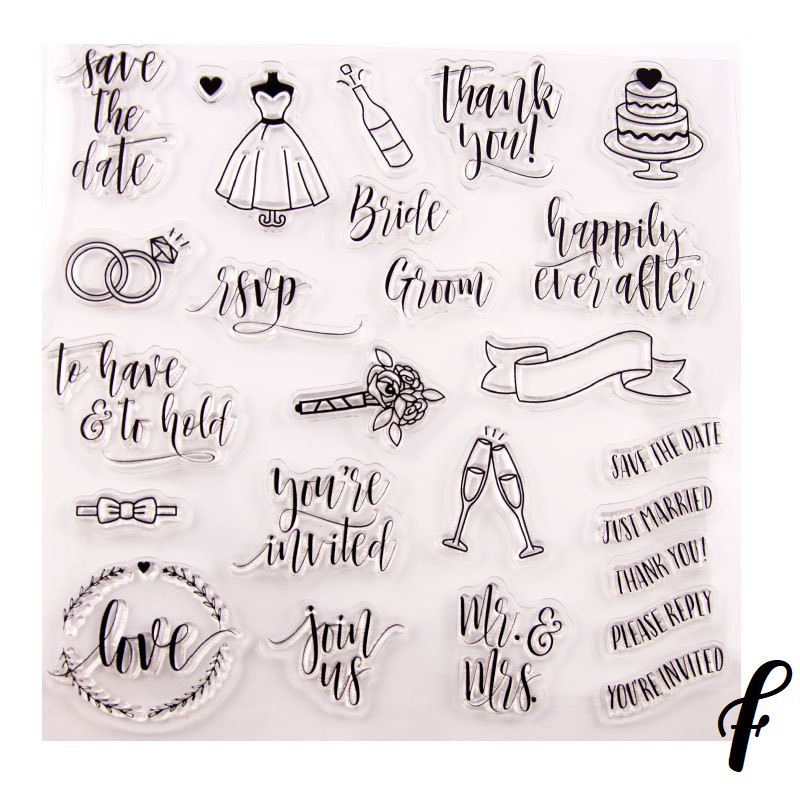 save
the
date
thank
you!
Bride
happily
ever after
rsvp
Groom
to have
& to hold
SAVE THE DATE
you're
invited
JUST MARRIED
THANK YOU!
love
join
us
Mr. &
Mrs.
PLEASE REPLY
YOU'RE INVITED
f